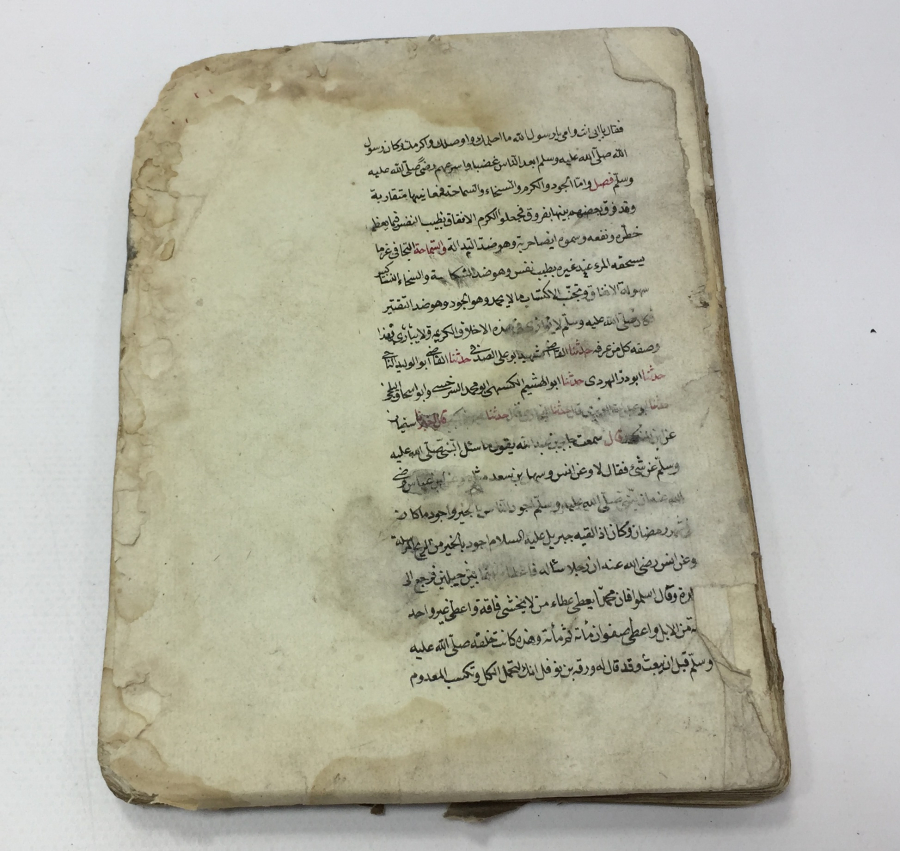 فقال بابى انت وامى يا رسول الله ما احلمك واوصلك واكرمك وكان رسول
الله صلى الله عليه وسلم ابعد الناس غضبا واسرعهم رضى صلى الله عليه
وسلم فصل واما الجود والكرم والسخاء والسماحة فمعانيها متقاربة
وقد فرق بعضهم بينها بفروق فجعلوا الكرم الانفاق بطيب النفس فيما يعظم
خطره ونفعه وسموه ايضا حرية وهو ضد النذالة والسماحة التجافى عما
يستحقه المرء عند غيره بطيب نفس وهو ضد الشكاسة والسخاء
سهولة الانفاق وتجنب اكتساب ما لا يحمد وهو الجود وهو ضد التقتير
صلى الله عليه وسلم لا يوازى فى هذه الاخلاق الكريمة ولا يبارى بهذا
وصفه كل من عرفه حدثنا القاضى الشهيد ابو على الصدفى حدثنا القاضى ابو الوليد الباجى
حدثنا ابو ذر الهروى حدثنا ابو الهيثم الكشميهنى وابو محمد السرخسى وابو اسحاق البلخى
حدثنا ابو عبد الله حدثنا حدثنا سفيان
عن ابن المنكدر قال سمعت جابر بن عبد الله يقول ما سئل النبى صلى الله عليه
وسلم عن شئ فقال لا وعن انس وسهل بن سعد مثله وعن ابن عباس رضى
الله النبى صلى الله عليه وسلم اجود الناس بالخير واجود ما كان
شهر رمضان وكان اذا لقيه جبريل عليه السلام اجود بالخير من الريح المرسلة
وعن انس رضى الله عنه ان رجلا سأله فاعطاه غنما بين جبلين فرجع الى
وقال اسلموا فان محمدا يعطى عطاء من لا يخشى فاقة واعطى غير واحد
من الابل واعطى صفوان مأة ثم مأة وهذه كانت خلقه صلى الله عليه
وسلم قبل ان يبعث وقد قال له ورقة بن نوفل انك لتحمل الكل وتكسب المعدوم